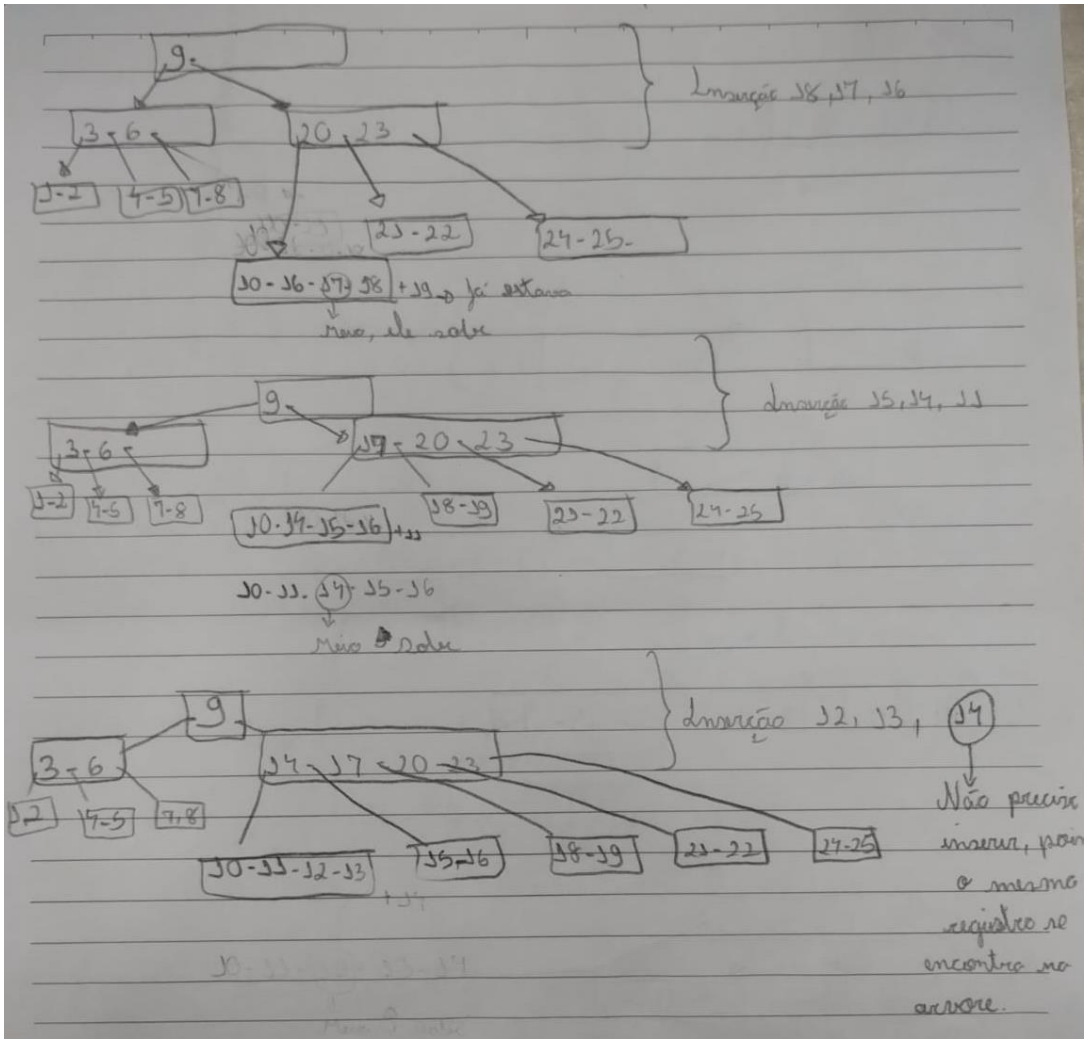 9.
Inserção 18, 17, 16
3 - 6 -
20 . 23
1-2
4-5
7-8
21 - 22
24 - 25 -
10 - 16 - 17 - 18 + 19 → já estava
Meio, ele sobe
9.
Inserção 15, 14, 11
3 - 6 -
17 - 20 - 23
1-2
4-5
7-8
10 - 14 - 15 - 16 + 11
18 - 19
21 - 22
24 - 25
10 - 11 - 14 - 15 - 16
Meio sobe
9
Inserção 12, 13, 14
3 - 6
14 - 17 - 20 - 23
1,2
4-5
7,8
10 - 11 - 12 - 13
15, 16
18 - 19
21 - 22
24-25
Não precisa
inserir, pois
o mesmo
registro se
encontra na
arvore.